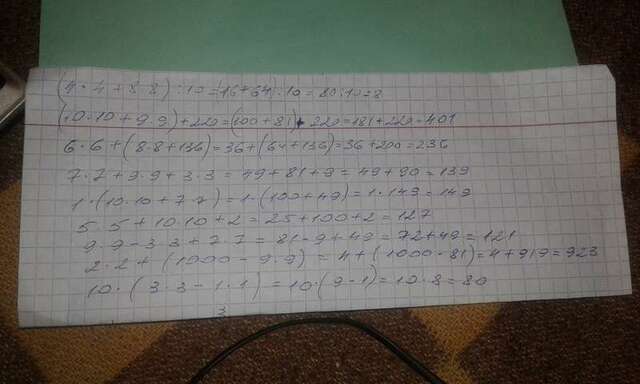 (4·4+8·8):10=(16+64):10=80:10=8
(10·10+9·9)+220=(100+81)+220=181+220=401
6·6+(8·8+136)=36+(64+136)=36+200=236
7·7+9·9+3·3=49+81+9=49+90=139
1·(10·10+7·7)=1·(100+49)=1·149=149
5·5+10·10+2=25+100+2=127
9·9-3·3+7·7=81-9+49=72+49=121
2·2+(1000-9·9)=4+(1000-81)=4+919=923
10·(3·3-1·1)=10·(9-1)=10·8=80
3